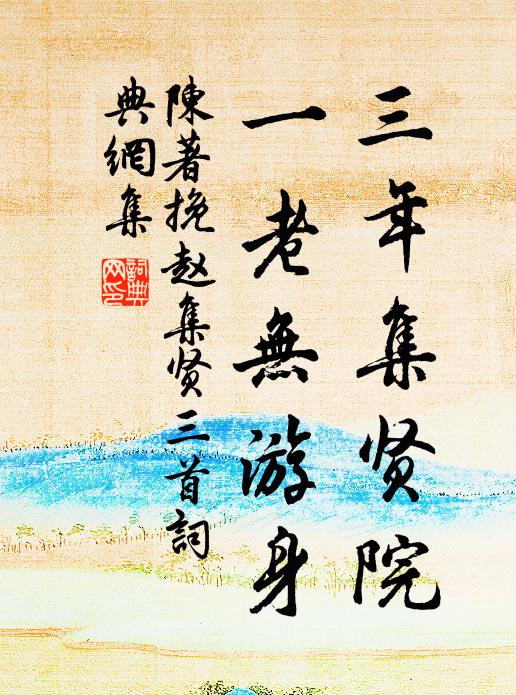 三年集贤院
一老無游身
陳著挽赵集贤三首詞
典網集
詞典
网印